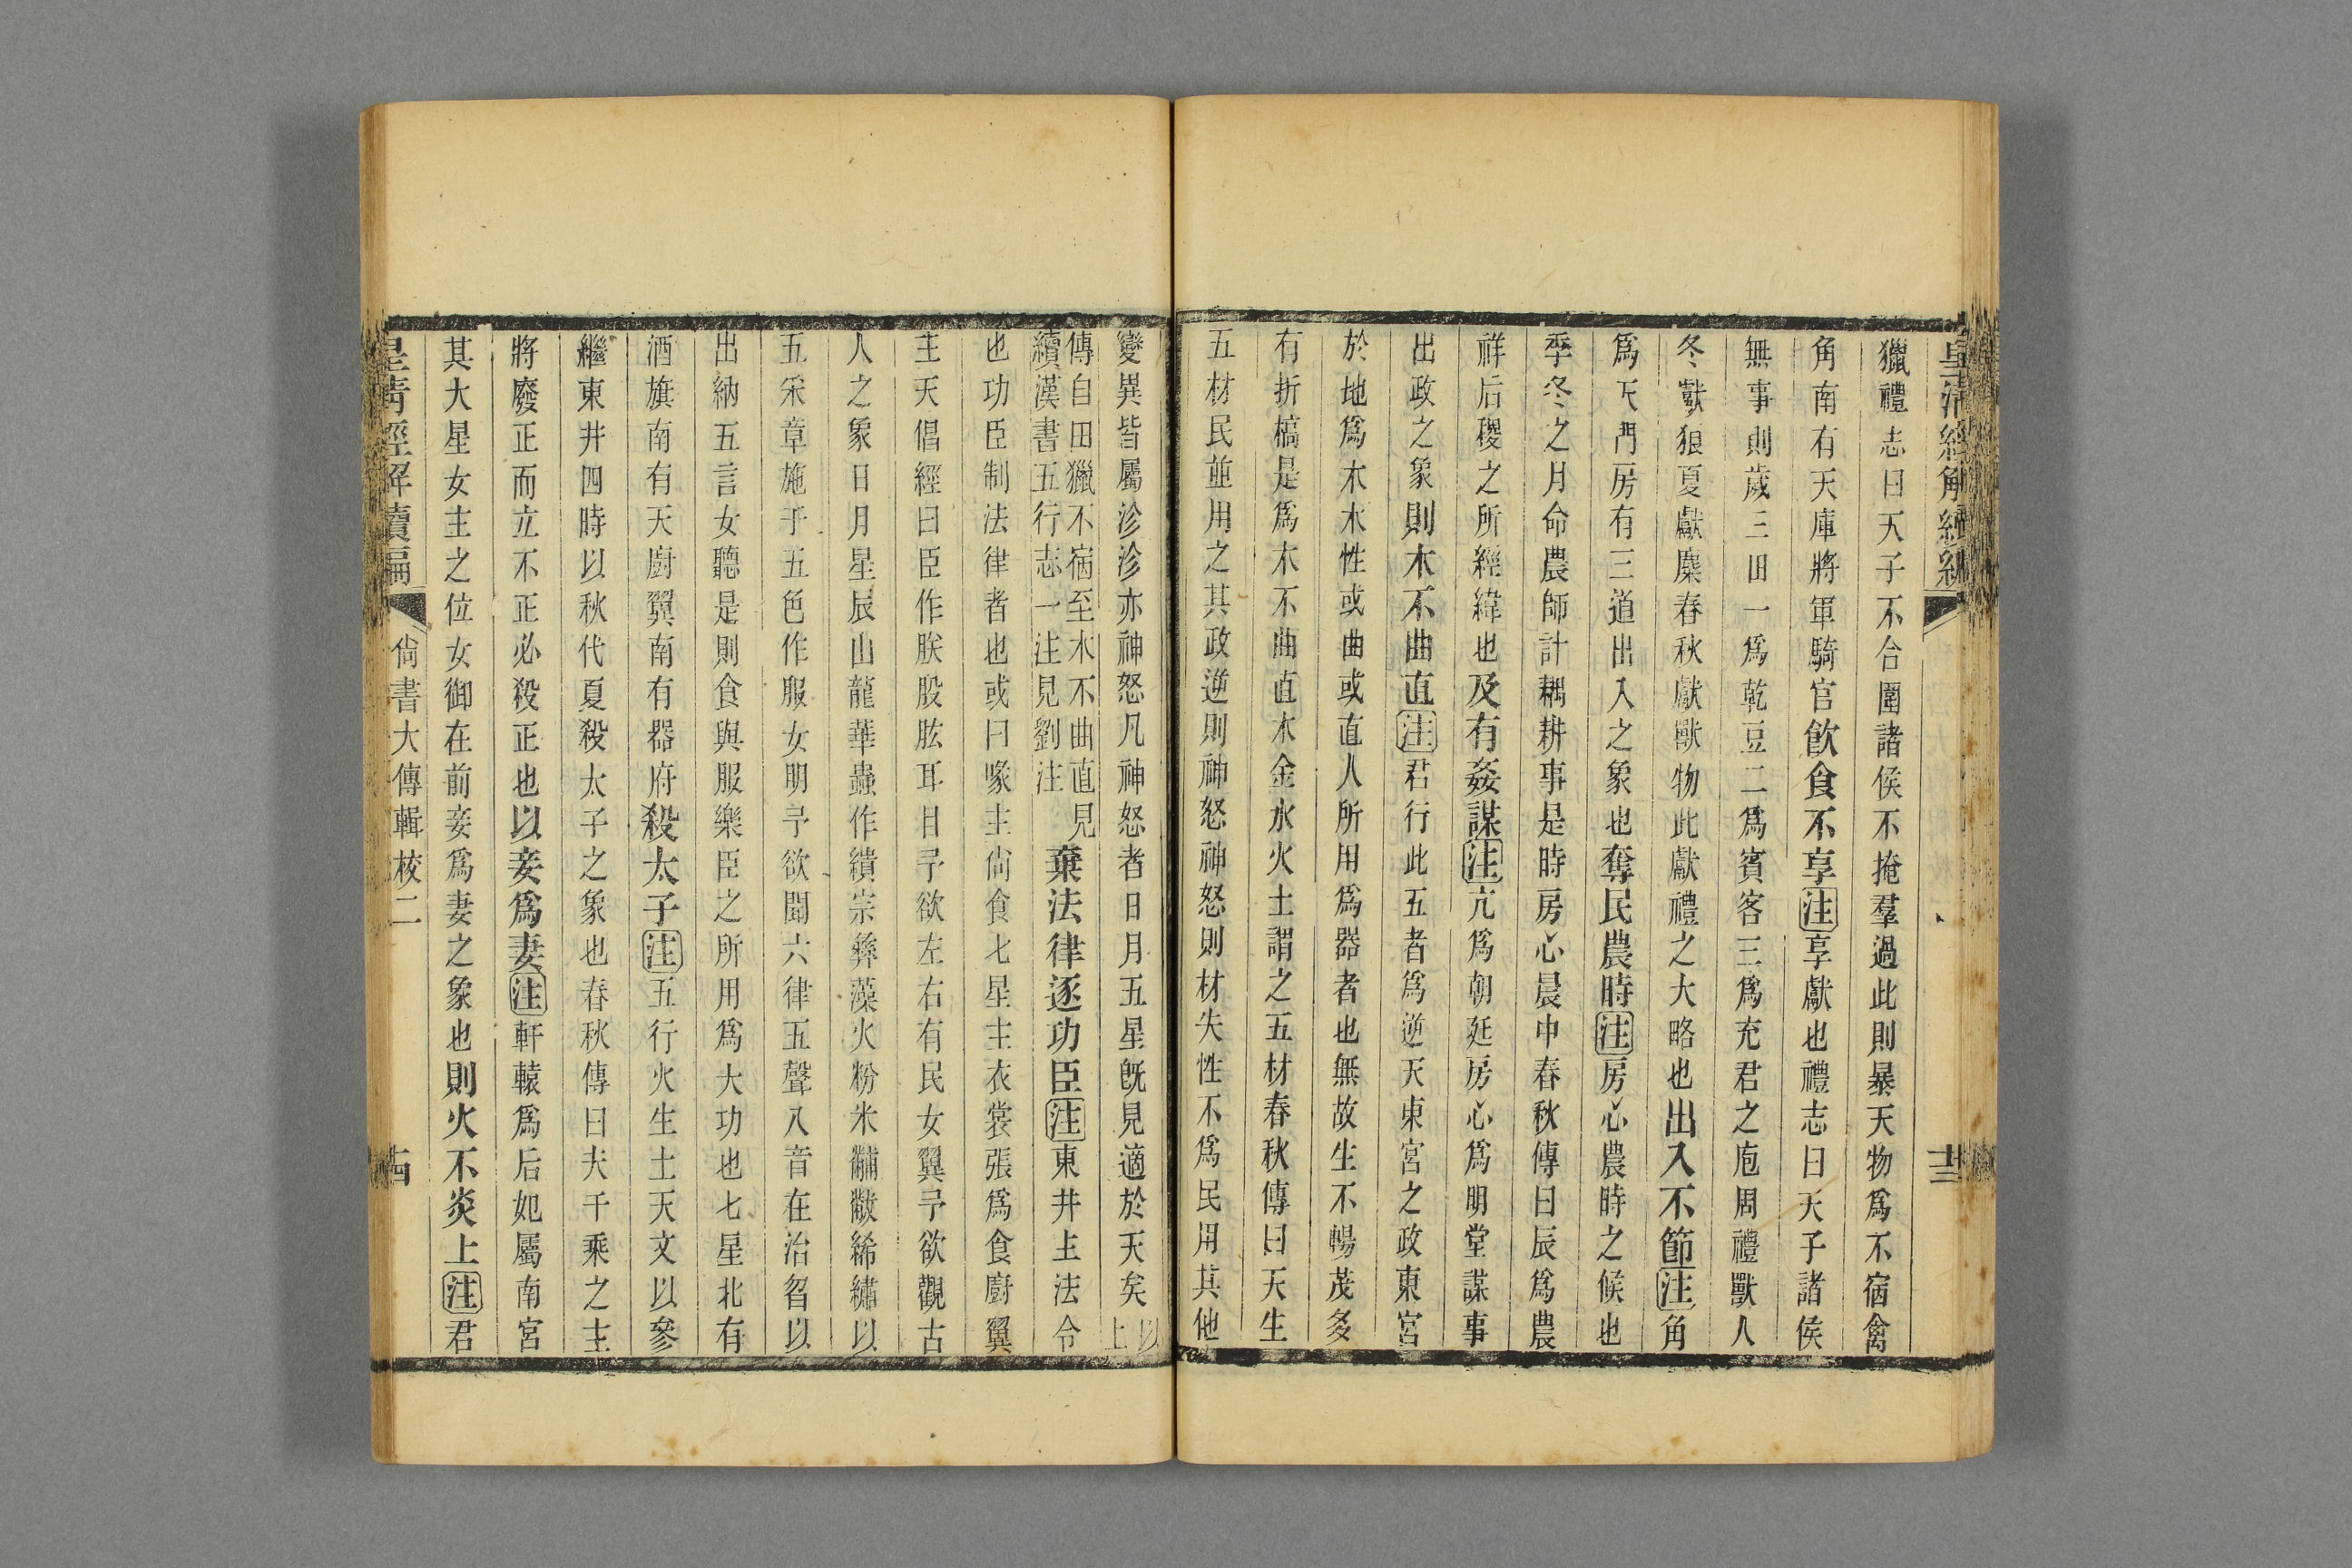 皇清經解續編
十三
獵禮志曰天子不合圍諸侯不掩羣過此則暴天物爲不宿禽
角南有天庫將軍騎官飲食不享注享獻也禮志曰天子諸侯
無事則歲三田一爲乾豆二爲賓客三爲充君之庖周禮獸人
冬獻狼夏獻麋春秋獻獸物此獻禮之大略也出入不節注角
爲天門房有三道出入之象也奪民農時注房心農時之候也
季冬之月命農師計耦耕事是時房心晨中春秋傳曰辰爲農
祥后稷之所經緯也及有姦謀注亢爲朝廷房心爲明堂謀事
出政之象則木不曲直注君行此五者爲逆天東宮之政東宮
於地爲木木性或曲或直人所用爲器者也無故生不暢茂多
有折槁是爲木不曲直木金水火土謂之五材春秋傳曰天生
五材民並用之其政逆則神怒神怒則材失性不爲民用其他
變異皆屬沴沴亦神怒凡神怒者日月五星旣見適於天矣以上
傳自田獵不宿至木不曲直見
續漢書五行志一注見劉注
棄法律逐功臣注東井主法令
也功臣制法律者也或曰喙主尙食七星主衣裳張爲食廚翼
主天倡經曰臣作朕股肱耳目予欲左右有民女翼予欲觀古
人之象日月星辰山龍華蟲作繢宗彝藻火粉米黼黻絺繡以
五采章施于五色作服女明予欲聞六律五聲八音在治曶以
出納五言女聽是則食與服樂臣之所用爲大功也七星北有
酒旗南有天廚翼南有器府殺太子注五行火生土天文以參
繼東井四時以秋代夏殺太子之象也春秋傳曰夫千乘之主
將廢正而立不正必殺正也以妾爲妻注軒轅爲后妃屬南宮
其大星女主之位女御在前妾爲妻之象也則火不炎上注君
皇清經解續編
尙書大傳輯校二
十四